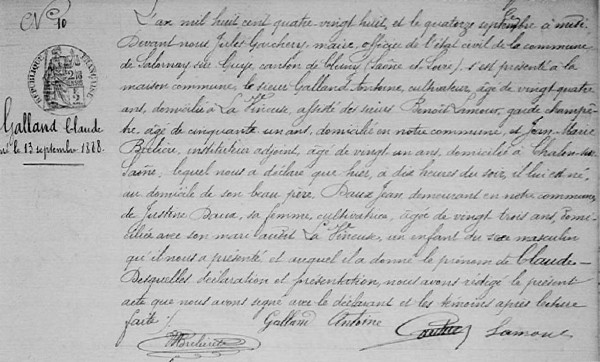 N° 10
RÉPUBLIQUE FRANÇAISE
Galland Claude
né le 13 septembre 1888.
L'an mil huit cent quatre vingt huit, et le quatorze septembre à midi
Devant nous Jules maire, officier de l'état civil de la commune
de Salornay sur Guye, canton de Cluny (Saône et Loire), s'est présenté à la
maison commune, le sieur Galland Antoine, cultivateur, âgé de vingt quatre
ans, domicilié à La Vineuse, assisté des sieurs Benoît Lamour, garde champê-
tre, âgé de cinquante un ans, domicilié en notre commune, et Jean Marie
instituteur adjoint, âgé de vingt un ans, domicilié à Chalon sur
Saône, lequel nous a déclaré que hier, à dix heures du soir, il lui est né,
au domicile de son beau père, Jean demeurant en notre commune,
de Justine sa femme, cultivatrice, âgée de vingt trois ans, domi-
ciliée avec son mari audit La Vineuse, un enfant du sexe masculin
qu'il nous a présenté, et auquel il a donné le prénom de Claude-
Desquelles déclaration et présentation, nous avons rédigé le présent
acte que nous avons signé avec le déclarant et les témoins après lecture
faite.
Galland Antoine Lamour